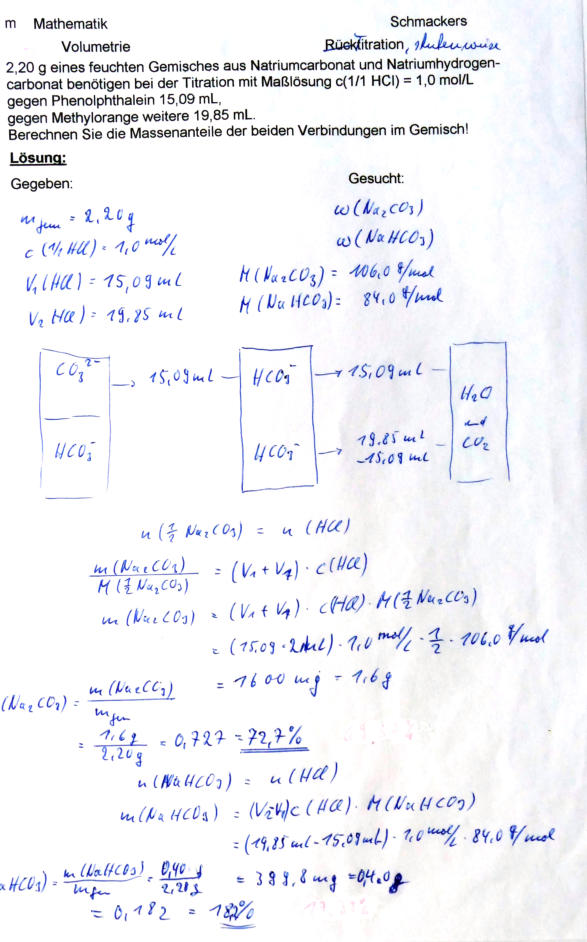 m Mathematik Schmackers
Volumetrie Rücktitration, stufenweise
2,20 g eines feuchten Gemisches aus Natriumcarbonat und Natriumhydrogen-
carbonat benötigen bei der Titration mit Maßlösung c(1/1 HCl) = 1,0 mol/L
gegen Phenolphthalein 15,09 mL,
gegen Methylorange weitere 19,85 mL.
Berechnen Sie die Massenanteile der beiden Verbindungen im Gemisch!
Lösung:
Gegeben: Gesucht:
m_gem = 2,20g ω(Na2CO3)
c(1/1 HCl) = 1,0 mol/L ω(NaHCO3)
V1(HCl) = 15,09 mL M(Na2CO3) = 106,0 g/mol
V2 HCl) = 19,85 mL M(NaHCO3) = 84,0 g/mol
CO3^2- → 15,09mL HCO3^- → 15,09mL H2O
und
HCO3^- HCO3^- → 19,85 mL CO2
-15,09 mL
n(1/2 Na2CO3) = n(HCl)
m(Na2CO3) / M(1/2 Na2CO3) = (V1+V1) · c(HCl)
m(Na2CO3) = (V1+V1) · c(HCl) · M(1/2 Na2CO3)
= (15,09 · 2 mL) · 1,0 mol/L · 1/2 · 106,0 g/mol
(Na2CO3) = m(Na2CO3) / m_gem = 1600 mg = 1,6g
= 1,6g / 2,20g = 0,727 = 72,7%
n(NaHCO3) = n(HCl)
m(NaHCO3) = (V2-V1)c(HCl) · M(NaHCO3)
= (19,85 mL - 15,09 mL) · 1,0 mol/L · 84,0 g/mol
aHCO3) = m(NaHCO3) / m_gem = 0,40 g / 2,20 g = 399,8 mg = 0,40g
= 0,182 = 18,2%